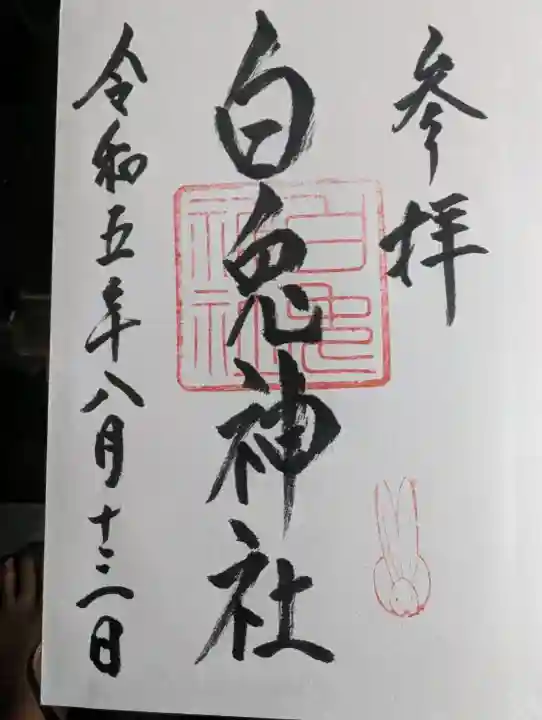 参拝
白兎神社
白兎神社
令和五年八月十三日